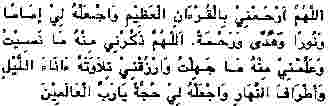 اَللّٰهُمَّ ارْحَمْنِيْ بِالْقُرْءَانِ الْعَظِيْمِ وَاجْعَلْهُ لِيْ اِمَامًا
وَنُوْرًا وَهُدًى وَرَحْمَةً. اَللّٰهُمَّ ذَكِّرْنِيْ مِنْهُ مَا نَسِيْتُ
وَعَلِّمْنِيْ مِنْهُ مَا جَهِلْتُ وَارْزُقْنِيْ تِلَاوَتَهُ ءَانَاءَ اللَّيْلِ
وَاَطْرَافَ النَّهَارِ وَاجْعَلْهُ لِيْ حُجَّةً يَارَبَّ الْعَالَمِيْنَ